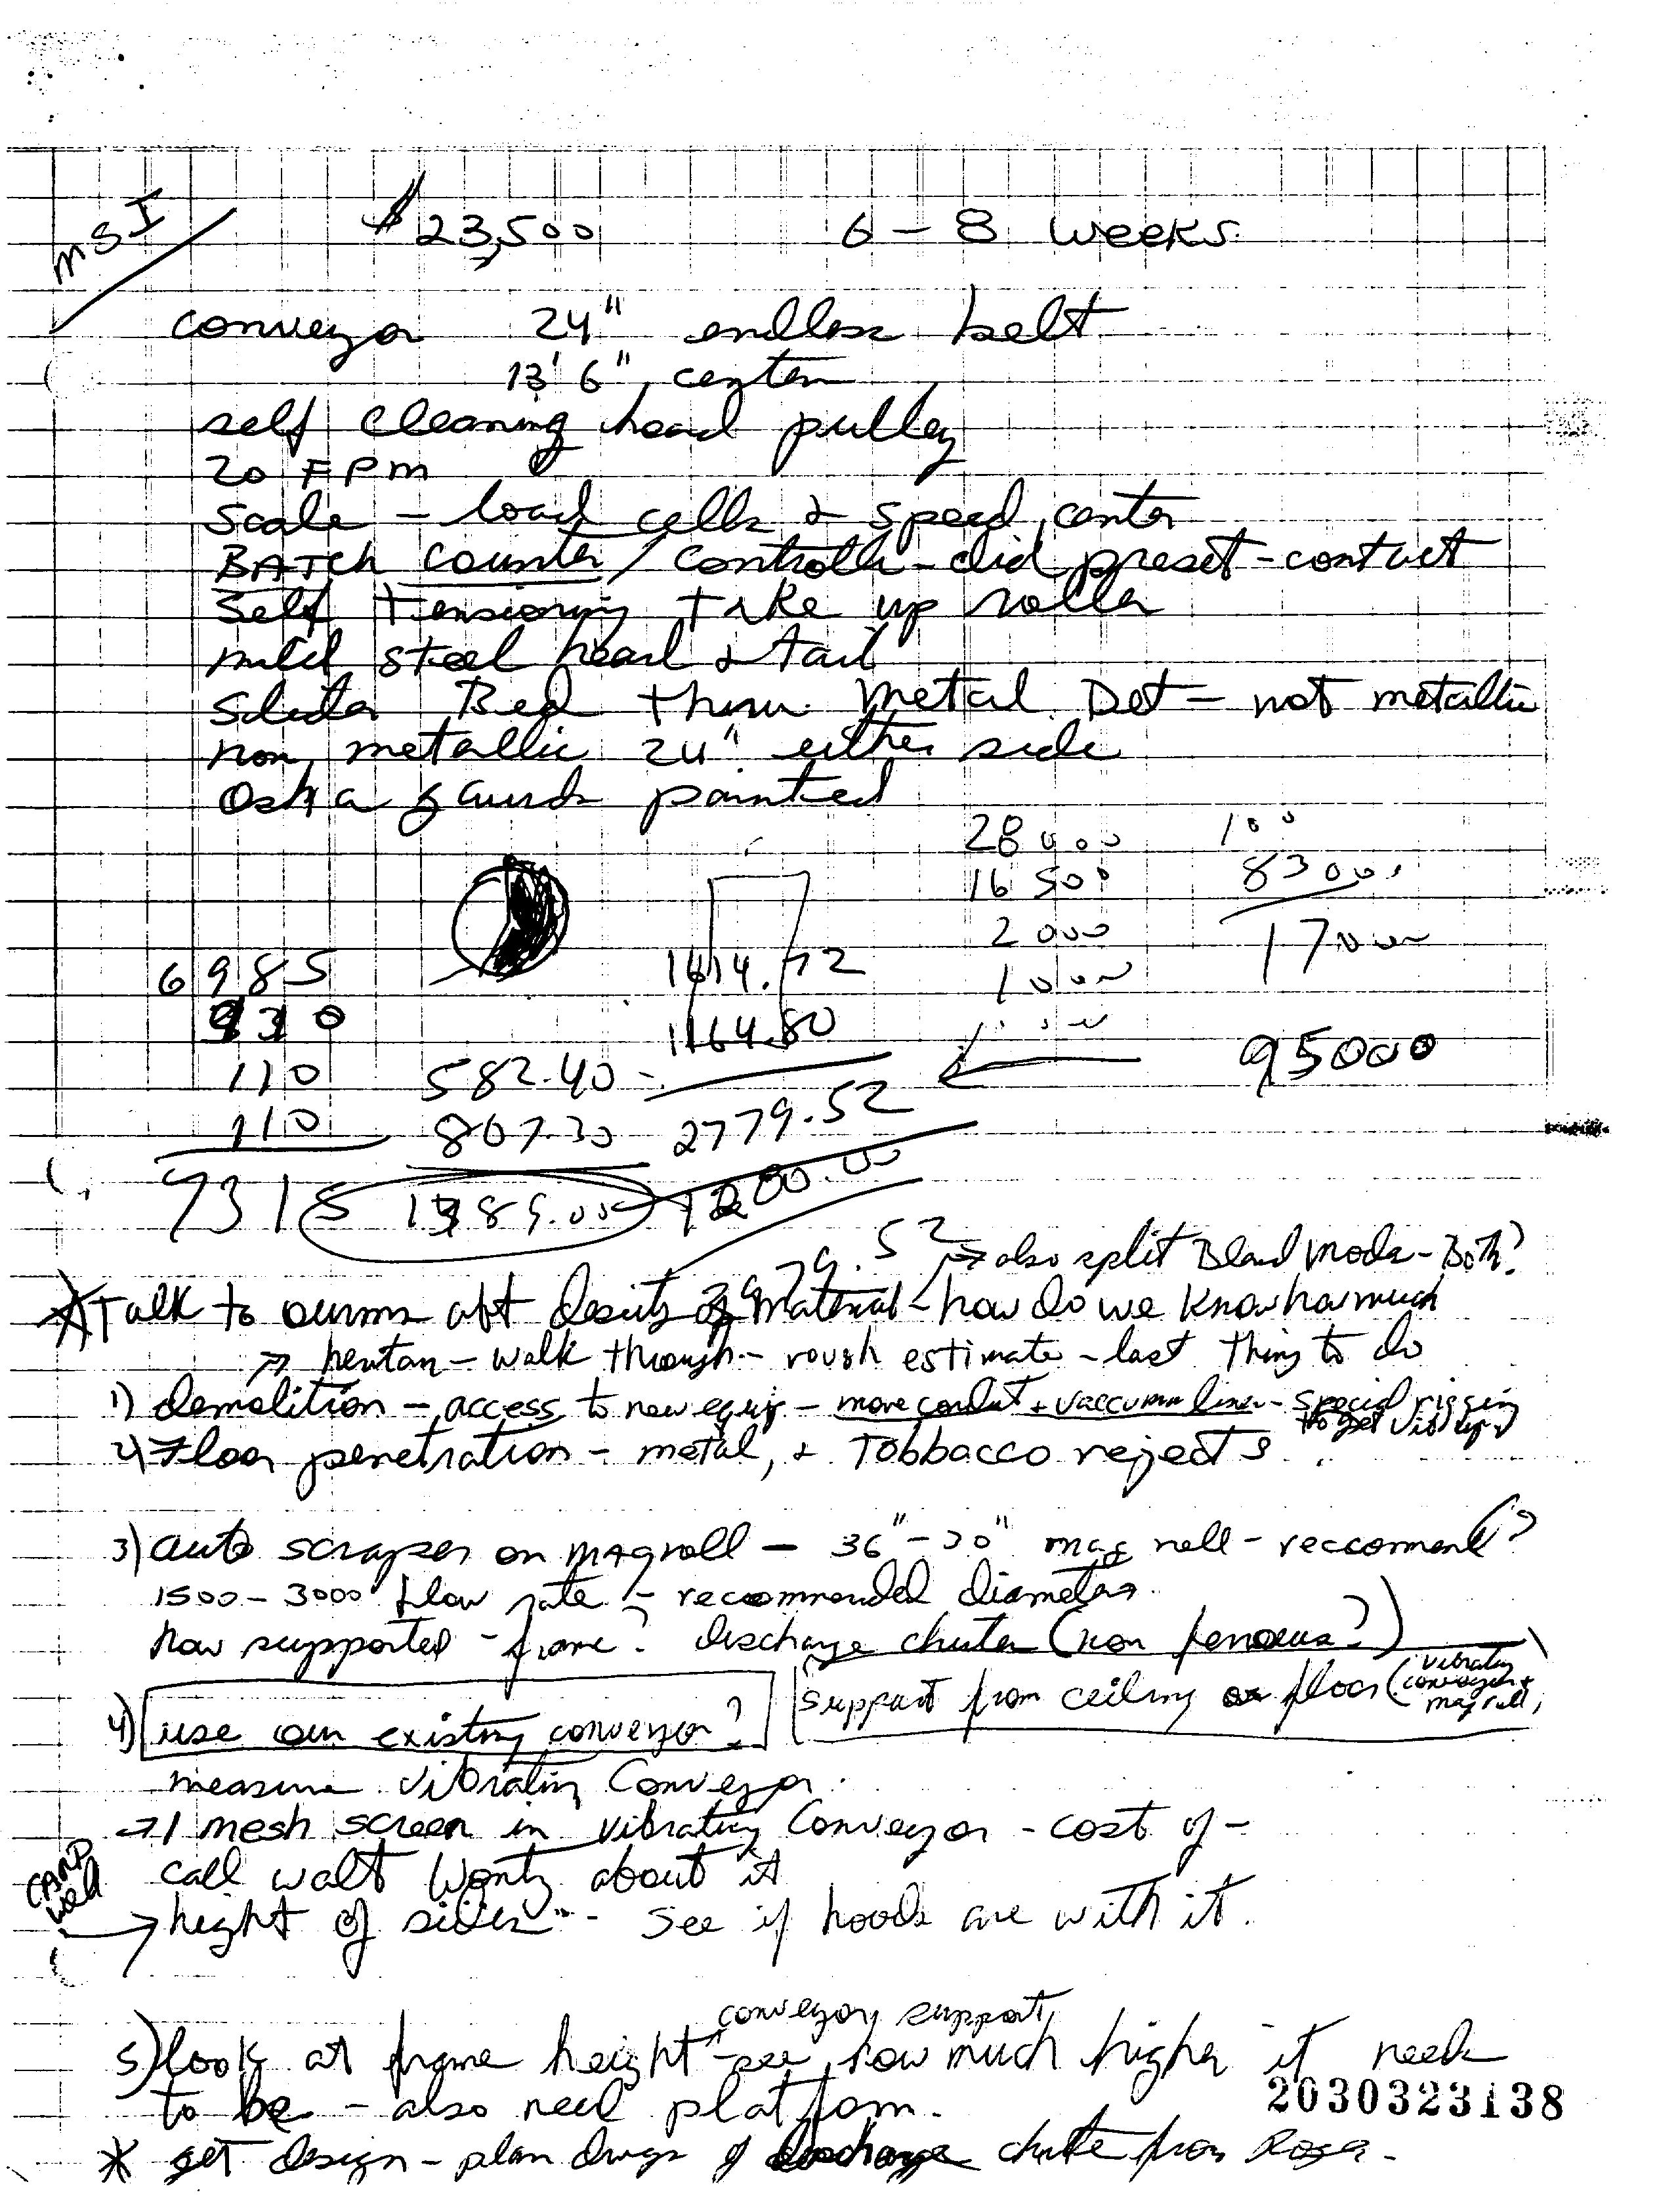 MSI
$23,500 6 - 8 weeks
conveyor 24" endless belt
13' 6" center
self cleaning head pulley
20 FPM
Scale - load cells & speed center
BATCH counter / controller - did preset - contact
Self Tensioning Take up roller
mild steel head & tail
Slider Bed thru Metal Det - not metallic
non metallic 24" either side
Osha guards painted
28000 100
16 500 83000
2000 17000
6985 1614.72 1000
930 1164.80
110 582.40 95000
110 807.30 2779.52
1389.00 1200.00
3979.52
→ also split Blend mode - Both?
Talk to about material - how do we know how much
→ walk through - rough estimate - last Thing to do
1) demolition - access to new equip - move conduit + vaccumm lines - special rigging
to get vib up
2) Floor penetration - metal, + Tobbacco rejects
3) auto scraper on magroll - 36" - 30" mag roll - reccommend?
1500 - 3000 flow rate - recommended diameter
how supported - frame? discharge chutes (non ferrous?)
support from ceiling or floor (vibrating conveyor + mag roll)
4) use our existing conveyor?
measure vibrating conveyor.
→ 1 mesh screen in vibrating conveyor - cost of -
call walt about it
→ height of sides - see if hoods are with it.
conveyor support
5) look at frame height - see how much higher it needs
to be - also need platform.
2030323138
* get design - plan dwgs of discharge chute from